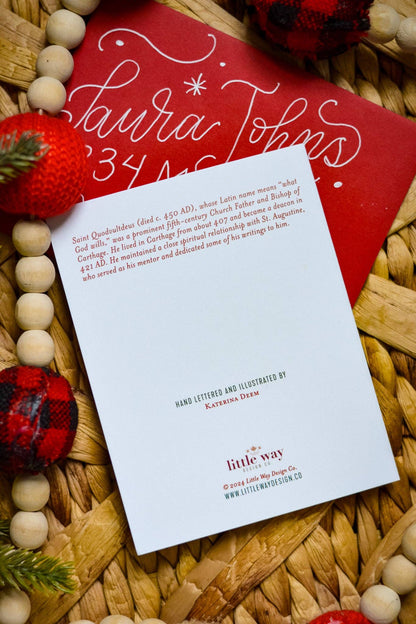 Laura Johns
234
Saint Quodvultdeus (died c. 450 AD), whose Latin name means "what
God wills," was a prominent fifth-century Church Father and Bishop of
Carthage. He lived in Carthage from about 407 and became a deacon in
421 AD. He maintained a close spiritual relationship with St. Augustine,
who served as his mentor and dedicated some of his writings to him.
HAND LETTERED AND ILLUSTRATED BY
KATERINA DEEM
little way
DESIGN CO
© 2024 Little Way Design Co.
WWW.LITTLEWAYDESIGN.CO